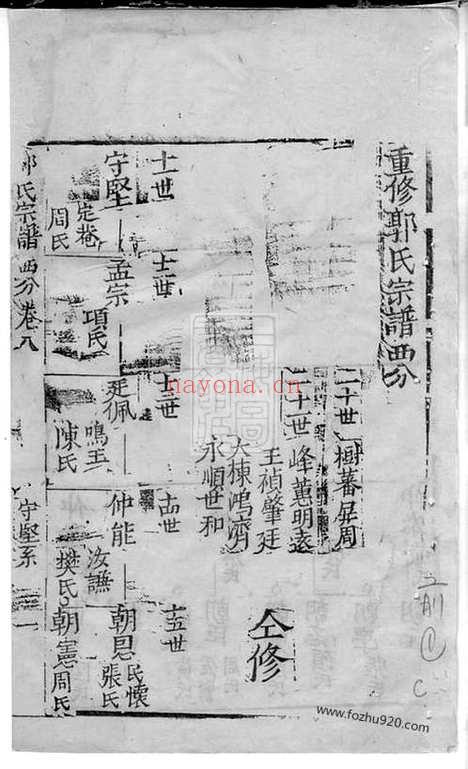 重修郭氏宗譜西分
二十世樹蕃屏周
二十世峰蕙明遠
王禎肇廷
大棟鴻濟
永順世和
仝修
十一世
十二世
十三世
十四世
十五世
守堅
定菴
周氏
孟宗
項氏
廷佩
鳴玉
陳氏
仲能
汝謙
樊氏
朝恩
民懷
張氏
朝憲
周氏
郭氏宗譜西分卷八
守堅系
nayona.cn
www.fozhu920.com